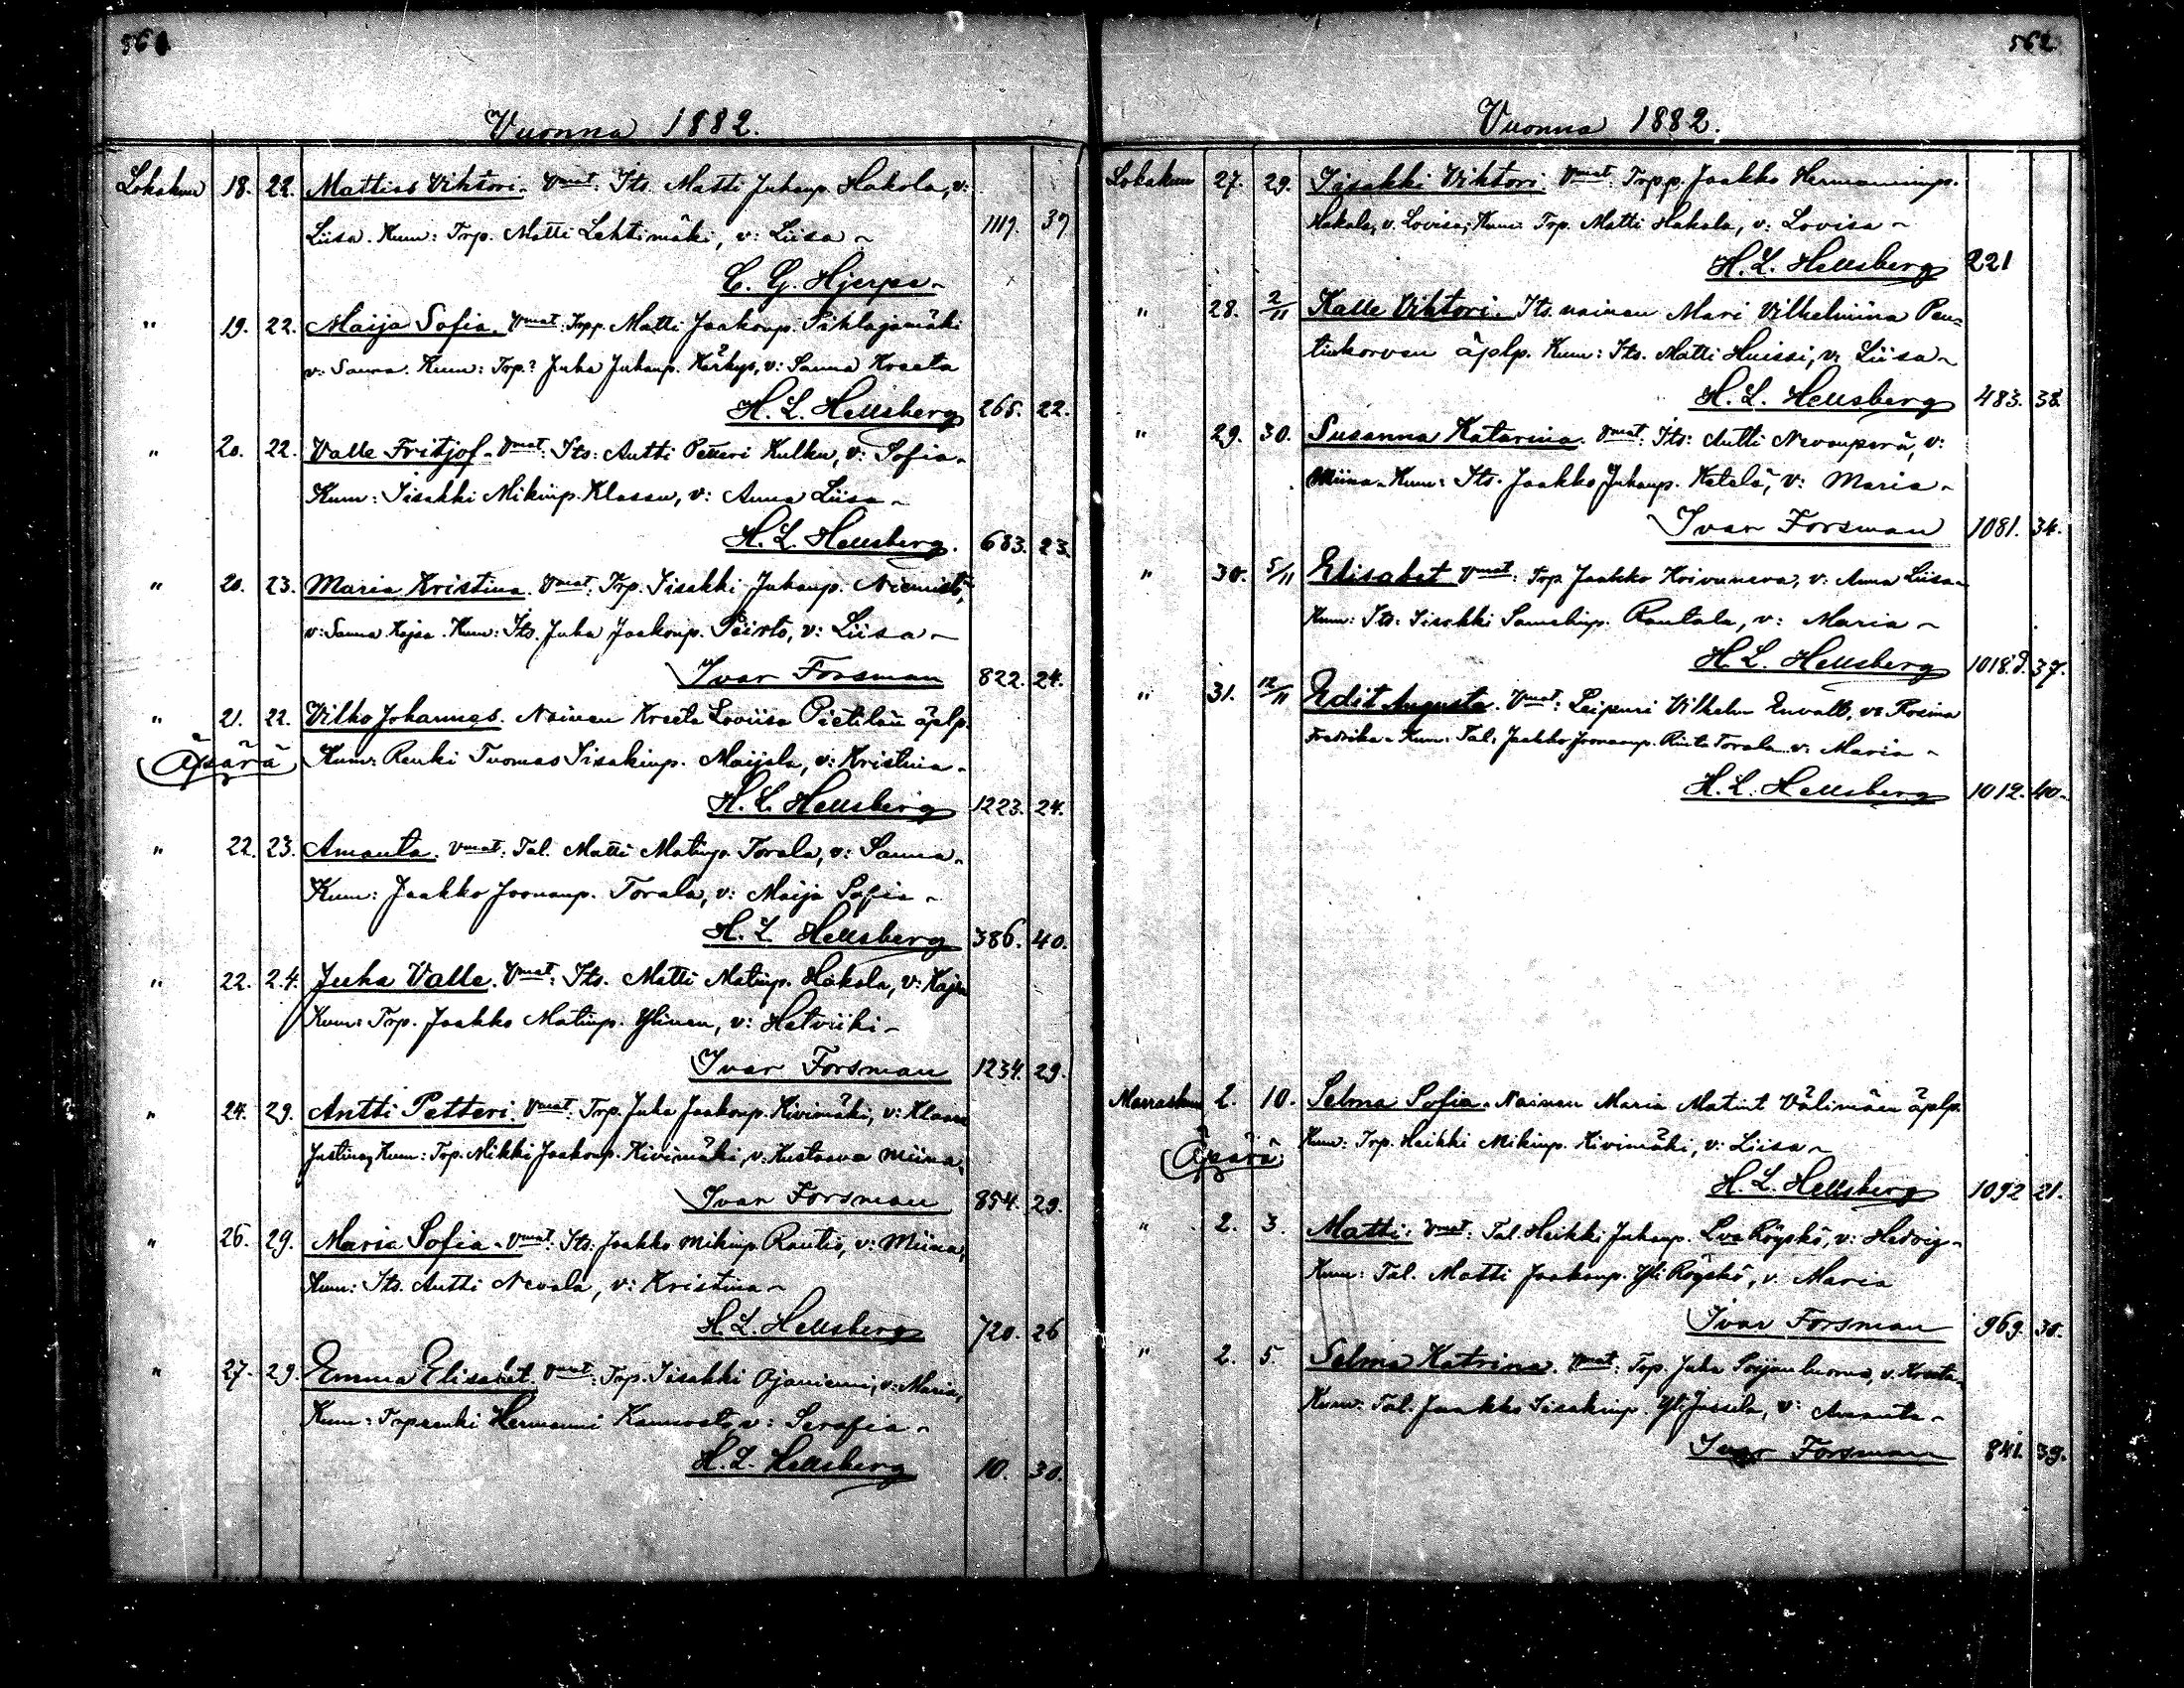 561
Vuonna 1882.
Lokakuu 18. 22. Mattias Vihtori. Vmat: Its. Matti Juhanp. Hakola, v:
Liisa. Kum: Trp. Matti Lehtimäki, v: Liisa 1117. 37
C. G. Hjerpe
" 19. 22. Maija Sofia. Vmat: Trpp. Matti Jaakonp. Pihlajamäki
v: Sanna. Kum: Trp. Juha Juhanp. Kärkys, v: Sanna Kreeta
H. L. Hellsberg 265. 22.
" 20. 22. Valle Fritjof. Vmat: Its: Antti Petteri Kulku, v: Sofia
Kum: Iisakki Mikinp. Klassu, v: Anna Liisa
H. L. Hellsberg. 683. 23.
" 20. 23. Maria Kristina. Vmat: Trp. Iisakki Juhanp. Niemistö,
v: Sanna Kajsa. Kum: Its. Juha Jaakonp. Piirto, v: Liisa
Ivar Forsman 822. 24.
" 21. 22. Vilho Johannes. Nainen Kreeta Loviisa Pietilän äplp.
Äpärä Kum: Renki Tuomas Iisakinp. Maijala, v: Kristina
H. L. Hellsberg 1223. 24.
" 22. 23. Amanta. Vmat: Tal. Matti Matinp. Torala, v: Sanna
Kum: Jaakko Joonanp. Torala, v: Maija Sofia
H. L. Hellsberg 386. 40.
" 22. 24. Juha Valle. Vmat: Its. Matti Matinp. Hakola, v: Kajsa
Kum: Trp. Jaakko Matinp. Ylinen, v: Hetviiki
Ivar Forsman 1234. 29.
" 24. 29. Antti Petteri. Vmat: Trp. Juha Jaakonp. Kivimäki, v: Klaara
Justina, Kum: Trp. Mikki Jaakonp. Kivimäki, v: Kustaava Miina
Ivar Forsman 854. 29.
" 26. 29. Maria Sofia. Vmat: Its: Jaakko Mikinp. Rautio, v: Miina,
Kum: Its. Antti Nevala, v: Kristina
H. L. Hellsberg 720. 26
" 27. 29. Emma Elisabet. Vmat: Trp. Iisakki Ojaniemi, v: Maria,
Kum: Trprenki Hermanni Kannosto, v: Serafia
H. L. Hellsberg 10. 30.
562
Vuonna 1882.
Lokakuu 27. 29. Iisakki Vihtori. Vmat: Trpp. Jaakko Hermanninp.
Hakala, v. Lovisa, Kum: Trp. Matti Hakala, v: Lovisa
H. L. Hellsberg 221
" 28. 2/11 Kalle Vihtori. Its. nainen Mari Vilhelmiina Pen=
tinkorven äplp. Kum: Its. Matti Huissi, v: Liisa
H. L. Hellsberg 483. 38.
" 29. 30. Susanna Katarina. Vmat: Its: Antti Nevanperä, v:
Miina. Kum: Its. Jaakko Juhanp. Ketelä, v: Maria
Ivar Forsman 1081. 34.
" 30. 5/11 Elisabet Vmat: Trp Jaakko Koivuneva, v: Anna Liisa
Kum: Its: Iisakki Samelinp. Rantala, v: Maria
H. L. Hellsberg 1018 37.
" 31. 12/11 Edit Augusta. Vmat: Leipuri Vilhelm Envall, v: Rosina
Fredrika. Kum: Tal: Jaakko Joonanp. Torala v: Maria
H. L. Hellsberg 1012. 40.
Marraskuu 2. 10. Selma Sofia. Nainen Maria Matint Välimäen äplp.
Äpärä Kum: Trp. Heikki Mikinp. Kivimäki, v: Liisa
H. L. Hellsberg 1092 21.
" 2. 3. Matti. Vmat: Tal. Heikki Juhanp. Röyskö, v: Hedvig
Kum: Tal. Matti Jaakonp. Yli Röyskö, v. Maria
Ivar Forsman 969. 30.
" 2. 5. Selma Katrina. Vmat: Trp. Juha v. Kreeta
Kum: Tal. Jaakko Iisakinp. Yli Jussila, v: Amanta
Ivar Forsman 841. 39.